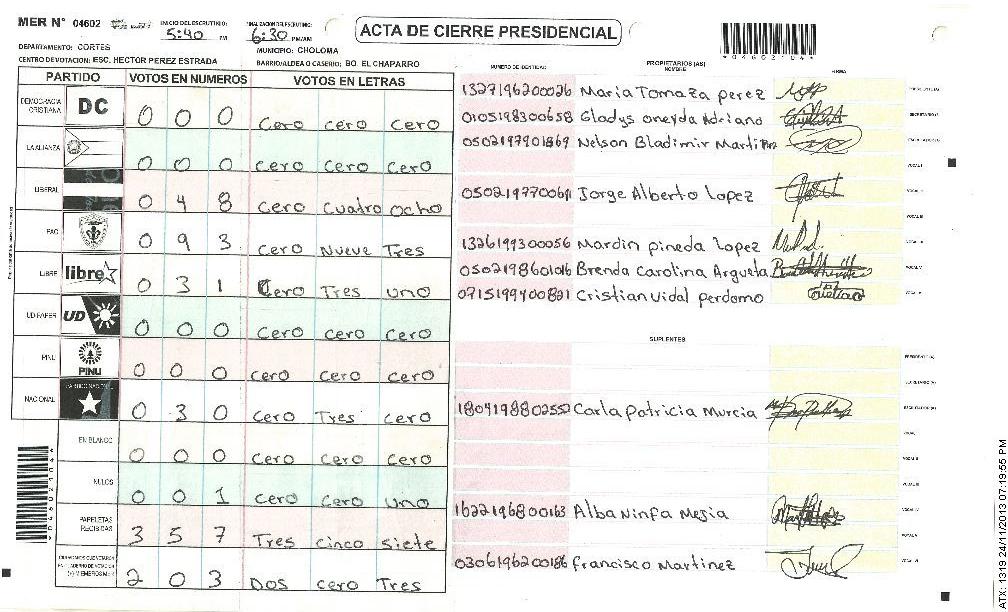 MER N° 04602 INICIO DEL ESCRUTINIO: 5:40 PM FINALIZACION DEL ESCRUTINIO: 6:30 PM/AM
ACTA DE CIERRE PRESIDENCIAL
*04602104*
DEPARTAMENTO: CORTES MUNICIPIO: CHOLOMA
CENTRO DE VOTACION: ESC. HECTOR PEREZ ESTRADA BARRIO/ALDEA O CASERIO: BO. EL CHAPARRO
PARTIDO VOTOS EN NUMEROS VOTOS EN LETRAS
DEMOCRACIA CRISTIANA DC 0 0 0 Cero cero Cero
LA ALIANZA 0 0 0 Cero Cero Cero
LIBERAL 0 4 8 Cero Cuatro Ocho
PAC 0 9 3 Cero Nueve Tres
LIBRE libre 0 3 1 Cero Tres uno
UD FAPER UD 0 0 0 Cero Cero Cero
PINU PINU 0 0 0 Cero Cero Cero
NACIONAL PARTIDO NACIONAL 0 3 0 Cero Tres cero
EN BLANCO 0 0 0 Cero Cero Cero
NULOS 0 0 1 Cero Cero uno
PAPELETAS RECIBIDAS 3 5 7 Tres cinco siete
2 0 3 Dos cero Tres
NUMERO DE IDENTIDAD PROPIETARIOS (AS) NOMBRE FIRMA
1327196200026 Maria Tomaza perez
0105198300658 Gladys oneyda Adriano
0502197901869 Nelson Bladimir Martinez
Jorge Alberto Lopez
1326199300056 Mardin pineda Lopez
0502198601016 Brenda Carolina Argueta
0715199400801 Cristian Vidal perdomo
SUPLENTES
1804198802552 Carla Patricia Murcia
1622196800163 Alba Ninfa Mejia
0306196200186 Francisco Martinez
*04602104*
ATX: 1319 24/11/2013 07:19:55 PM